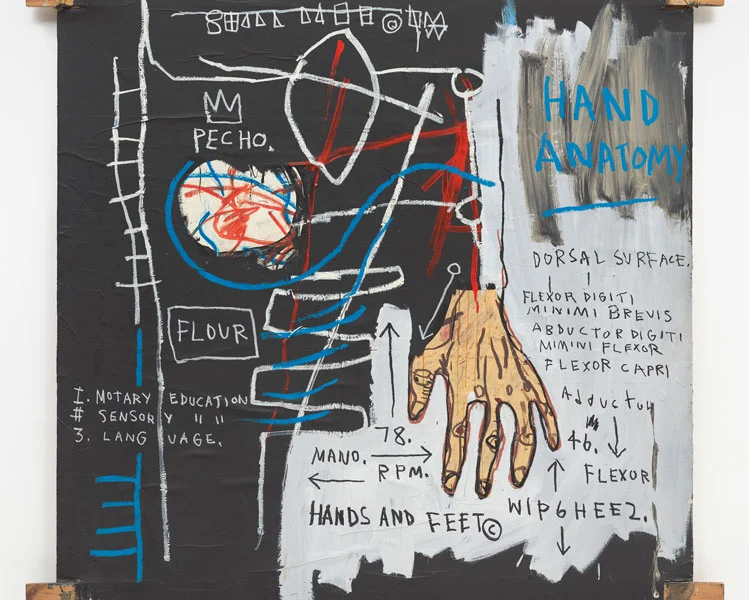 ©
PECHO.
FLOUR
I. MOTARY EDUCATION
# SENSORY " "
3. LANGUAGE.
HAND
ANATOMY
DORSAL SURFACE.
FLEXOR DIGITI
MINIMI BREVIS
ABDUCTOR DIGITI
MIMINI FLEXOR
FLEXOR CAPRI
ADDUCTOR
46.
FLEXOR
78.
MANO.
RPM.
HANDS AND FEET©